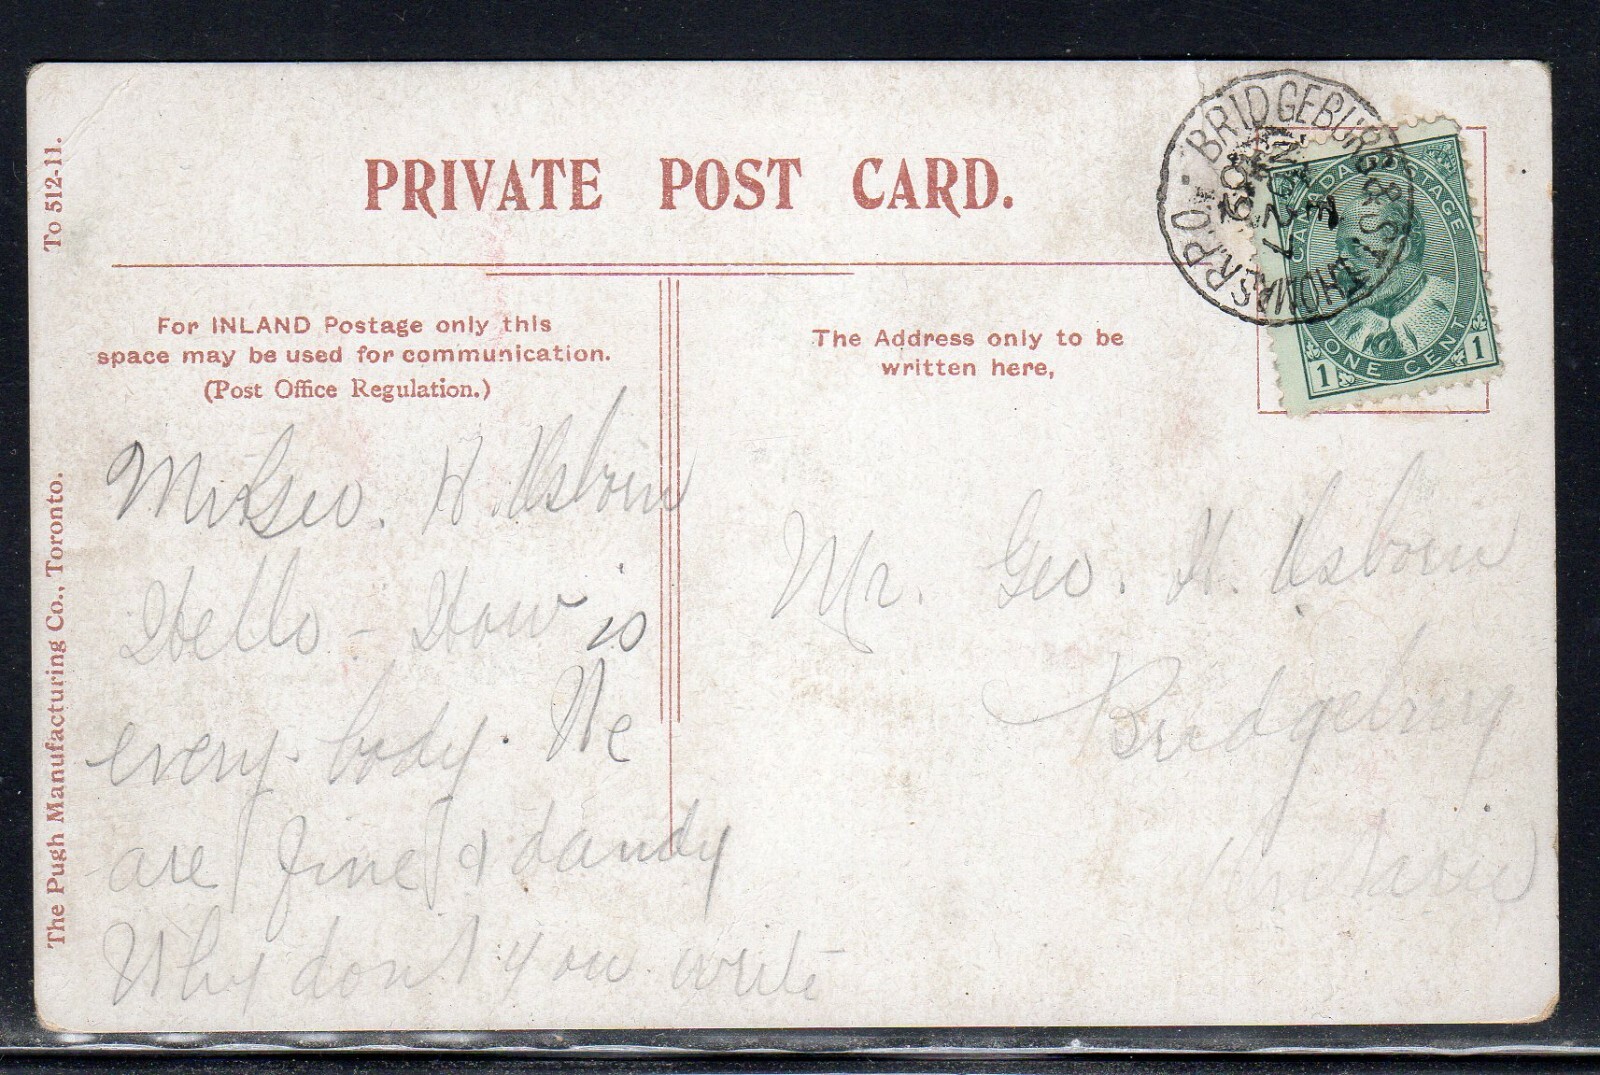 PRIVATE POST CARD.
To 512-11.
The Pugh Manufacturing Co., Toronto.
For INLAND Postage only this
space may be used for communication.
(Post Office Regulation.)
The Address only to be
written here,
BRIDGEBURG & ST. THOMAS R.P.O.
CANADA POSTAGE
ONE CENT
1 1
Mr Geo. H Usborn
Hello - How is
every body. We
are fine & dandy
Why don't you write
Mr. Geo. H. Usborn
Bridgeburg
Ontario